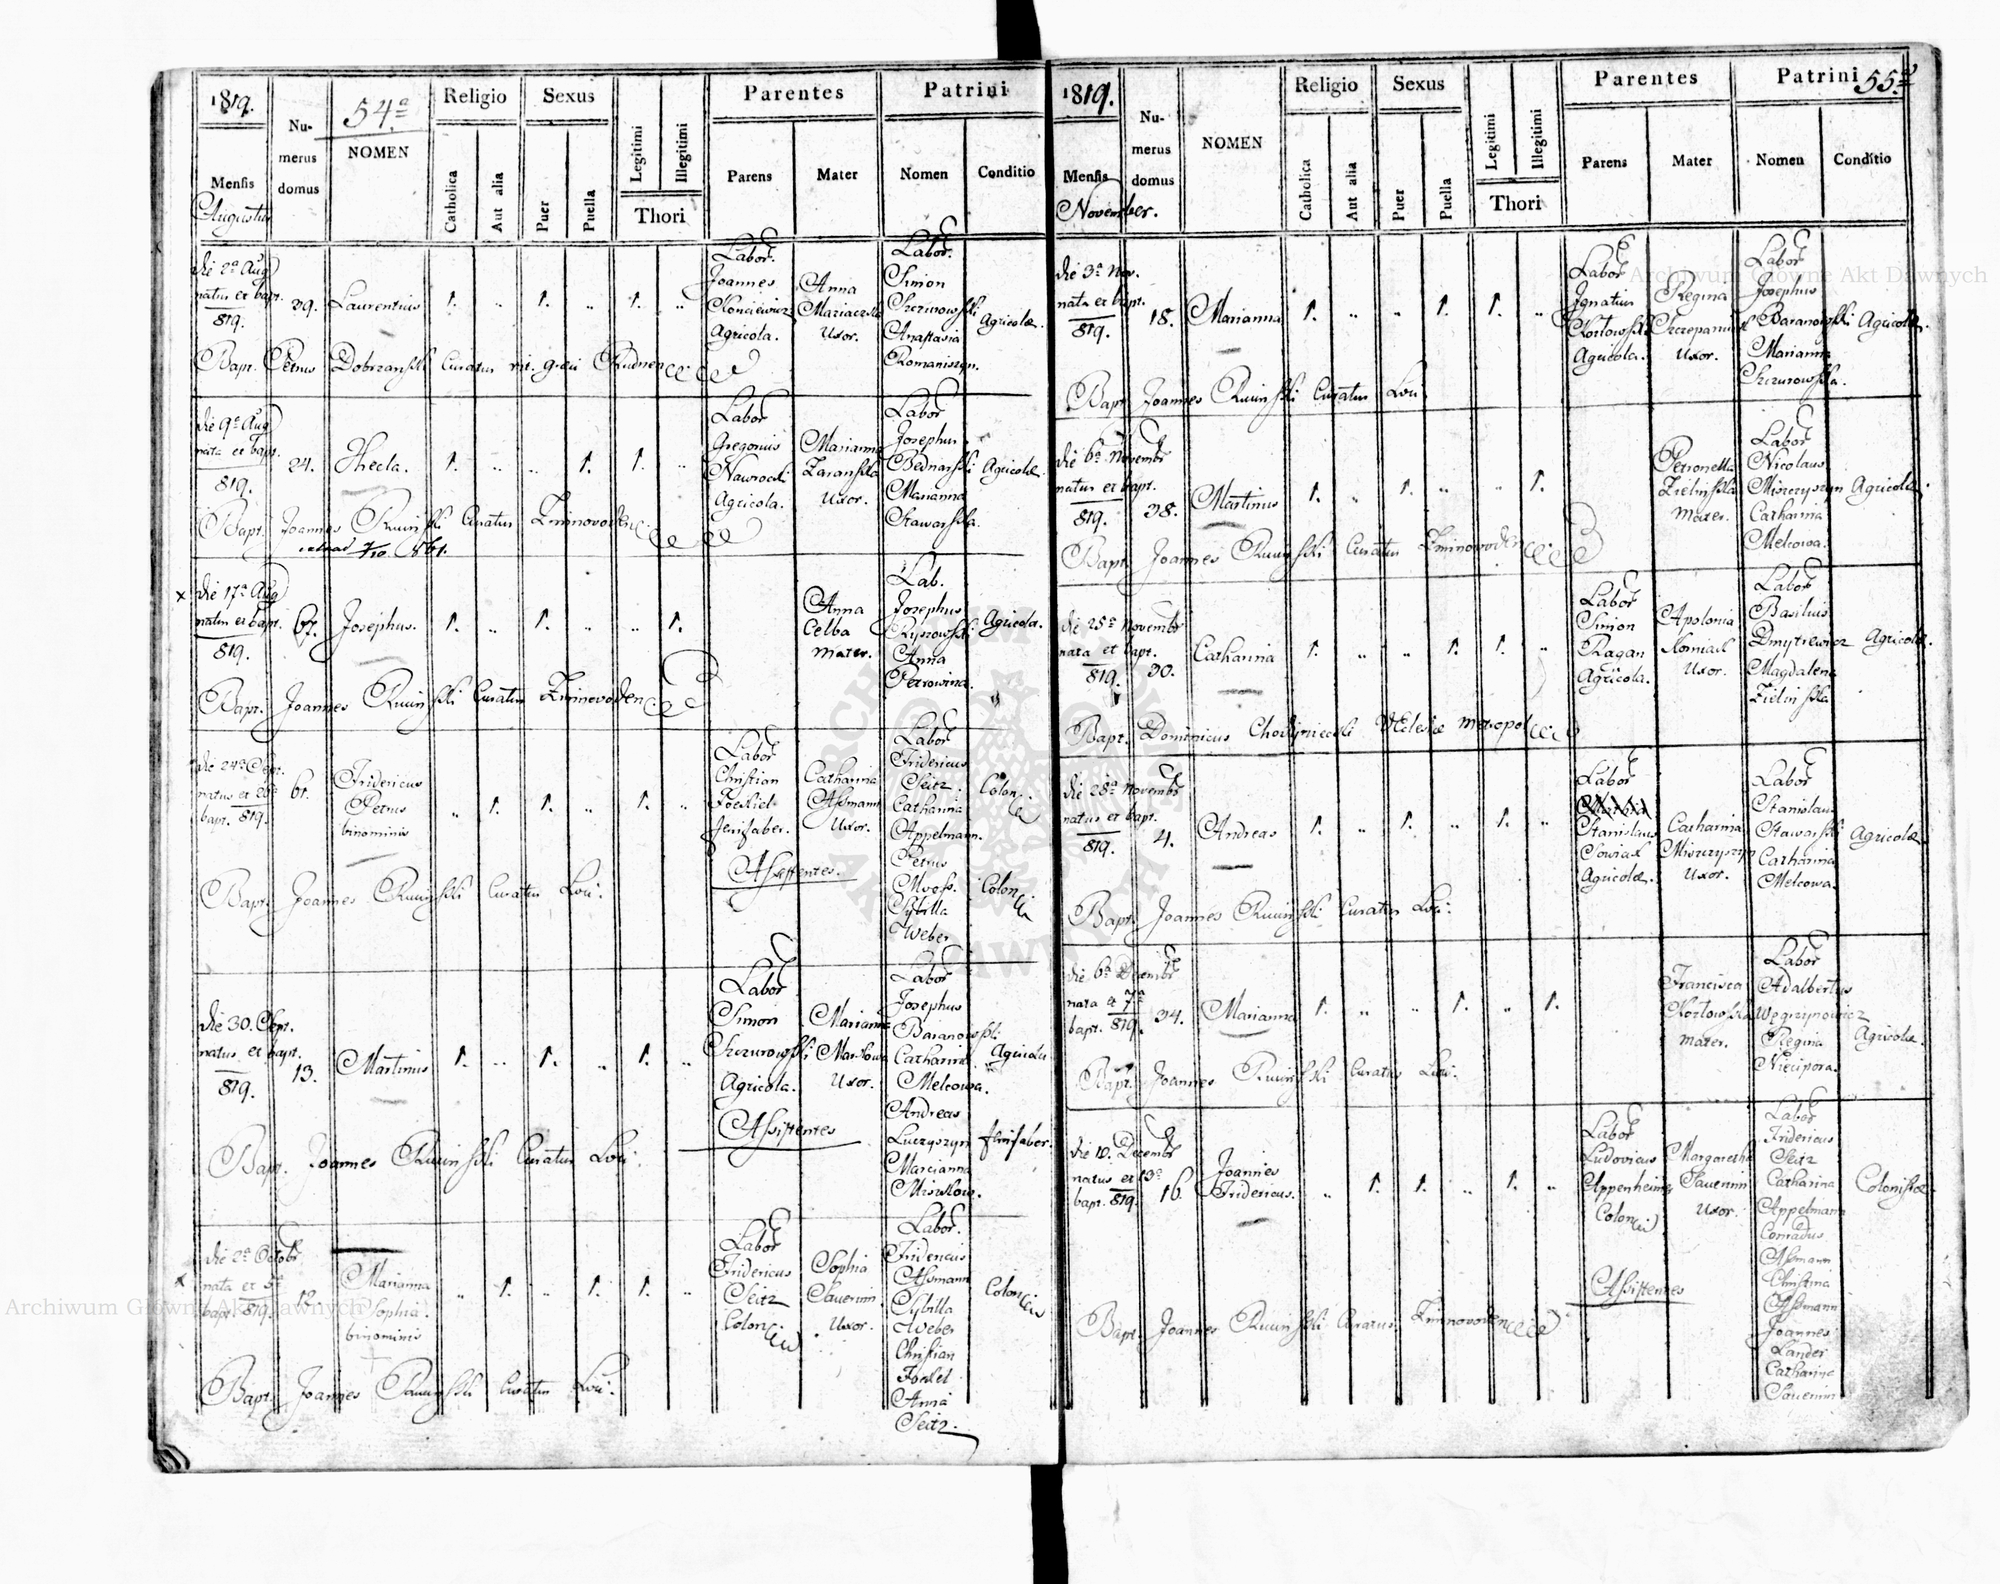 1819.
54ª
Numerus domus
NOMEN
Religio
Sexus
Legitimi
Illegitimi
Thori
Parentes
Patrini
Mensis
Augustus
Catholica
Aut alia
Puer
Puella
Parens
Mater
Nomen
Conditio
die 2ª Aug
natus et bapt.
819.
39.
Laurentius
1.
1.
1.
Labor.
Joannes
Agricola.
Anna
Uxor.
Labor.
Simon
Szczurowski
Anastasia
Romaniszyn.
Agricolæ.
Bapt. Petrus Dobrzanski Curatus rit. græci
die 9ª Aug
nata et bapt.
819.
24.
Thecla.
1.
1.
1.
Labor
Gregorius
Nawrocki
Agricola.
Marianna
Zaranska
Uxor.
Labor
Josephus
Bednarski
Marianna
Stawarska.
Agricolæ.
Bapt. Joannes Curatus
die 17ª Aug
natus et bapt.
819.
67.
Josephus.
1.
1.
1.
Anna
Celba
Mater.
Lab.
Josephus
Ryszowski
Anna
Petrowina.
Agricola.
Bapt. Joannes Curatus
die 24ª Sept.
natus et 26ª
bapt. 819.
61.
Fridericus
Petrus
binominis
1.
1.
1.
Labor
Christian
Catharina
Assmann
Uxor.
Labor
Fridericus
Seitz.
Catharina
Appelmann.
Colon
Assistentes.
Petrus
Sybilla
Weber
Colon
Bapt. Joannes Curatus Loci.
die 30. Sept.
natus et bapt.
819.
13.
Martinus
1.
1.
1.
Labor
Simon
Szczurowski
Agricola.
Marianna
Uxor.
Labor
Josephus
Baranowski
Catharina
Melcowa.
Agricolæ
Assistentes
Andreas
Luczyszyn
Marcianna
Bapt. Joannes Curatus Loci.
die 2ª Octobr
nata et 5ª
bapt. 819.
12.
Marianna
Sophia
binominis
1.
1.
1.
Labor
Fridericus
Seitz
Colon
Sophia
Sauerin
Uxor.
Labor.
Fridericus
Assmann
Sybilla
Weber
Christian
Anna
Seitz.
Colon
Bapt. Joannes Curatus Loci.
1819.
55ª
Numerus domus
NOMEN
Religio
Sexus
Legitimi
Illegitimi
Thori
Parentes
Patrini
Mensis
November.
Catholica
Aut alia
Puer
Puella
Parens
Mater
Nomen
Conditio
die 3ª Nov.
nata et bapt.
819.
18.
Marianna
1.
1.
1.
Labor
Ignatius
Kozlowski
Agricola.
Regina
Uxor.
Labor
Josephus
Baranowski
Marianna
Szczurowska.
Agricolæ.
Bapt. Joannes Curatus Loci
die 6ª Novembr
natus et bapt.
819.
38.
Martinus
1.
1.
1.
Petronella
Zielinska
Mater.
Labor
Nicolaus
Miszczyszyn
Catharina
Melcowa.
Agricolæ.
Bapt. Joannes Curatus
die 25ª Novembr
nata et bapt.
819.
30.
Catharina
1.
1.
1.
Labor
Simon
Ragan
Agricola.
Apolonia
Uxor.
Labor
Basilius
Dmytrewicz
Magdalena
Zielinska
Agricolæ.
Bapt. Dominicus
die 28ª Novembr
natus et bapt.
819.
4.
Andreas
1.
1.
1.
Labor
Stanislaus
Sowiak
Agricolæ.
Catharina
Miszczyszyn
Uxor.
Labor
Stanislaus
Stawarski
Catharina
Melcowa.
Agricolæ
Bapt. Joannes Curatus Loci.
die 6ª Decembr
nata et 7ª
bapt. 819.
34.
Marianna
1.
1.
1.
Francisca
Kozlowska
Mater.
Labor
Adalbertus
Węgrzynowicz
Regina
Niecipora.
Agricolæ.
Bapt. Joannes Curatus Loci.
die 10. Decembr
natus et 13ª
bapt. 819.
16.
Joannes
Fridericus.
1.
1.
1.
Labor
Ludovicus
Appenheimer
Colon
Margaretha
Sauerin
Uxor.
Labor
Fridericus
Seitz
Catharina
Appelmann
Colonistæ.
Assistentes
Conradus
Assmann
Christina
Assmann
Joannes
Lander
Catharina
Sauerin
Bapt. Joannes Curatus
Archiwum Główne Akt Dawnych
Archiwum Główne Akt Dawnych